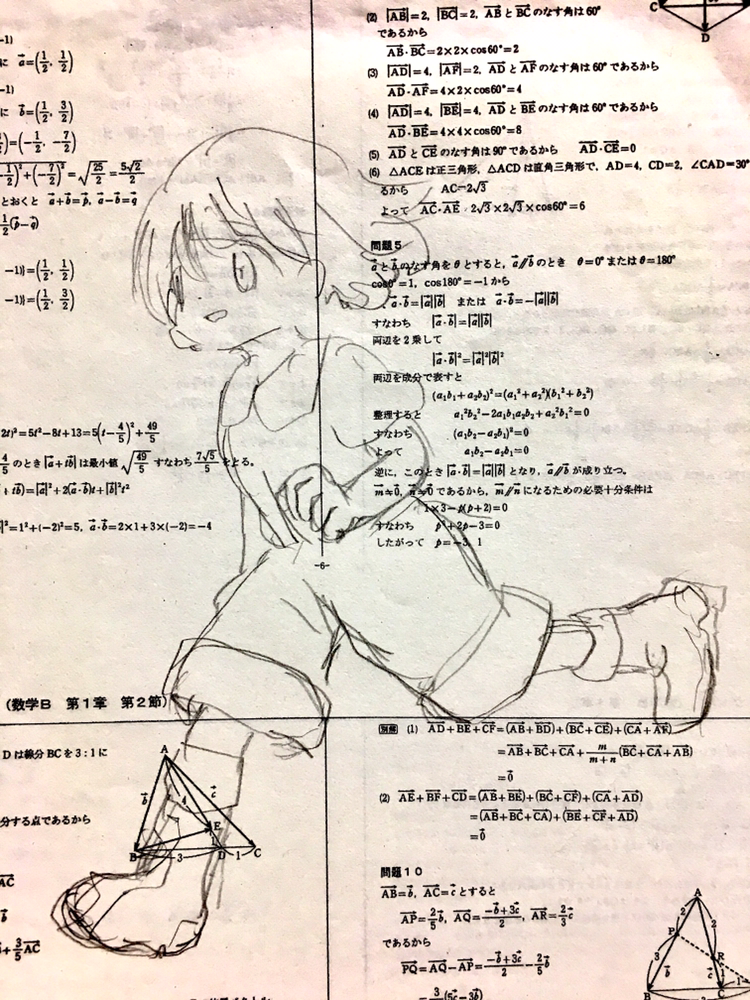 -1)
に a⃗=(1/2, 1/2)
-1)
に b⃗=(1/2, 3/2)
)=(-1/2, -7/2)
1/2)²+(-7/2)²=√(25/2)=5√2/2
とおくと a⃗+b⃗=p⃗, a⃗-b⃗=q⃗
1/2(p⃗-q⃗)
-1)}=(1/2, 1/2)
-1)}=(1/2, 3/2)
2t)²=5t²-8t+13=5(t-4/5)²+49/5
4/5 のとき|a⃗+tb⃗|は最小値 √(49/5) すなわち 7√5/5 をとる。
+tb⃗)=|a⃗|²+2(a⃗·b⃗)t+|b⃗|²t²
|²=1²+(-2)²=5, a⃗·b⃗=2×1+3×(-2)=-4
(2) |AB→|=2, |BC→|=2, AB→ と BC→ のなす角は 60°
であるから
AB→·BC→=2×2×cos60°=2
(3) |AD→|=4, |AF→|=2, AD→ と AF→ のなす角は 60° であるから
AD→·AF→=4×2×cos60°=4
(4) |AD→|=4, |BE→|=4, AD→ と BE→ のなす角は 60° であるから
AD→·BE→=4×4×cos60°=8
(5) AD→ と CE→ のなす角は 90° であるから AD→·CE→=0
(6) △ACE は正三角形, △ACD は直角三角形で, AD=4, CD=2, ∠CAD=30°
るから AC=2√3
よって AC→·AE→ 2√3×2√3×cos60°=6
C
D
問題5
a⃗ と b⃗ のなす角を θ とすると, a⃗∥b⃗ のとき θ=0° または θ=180°
cos0°=1, cos180°=-1 から
a⃗·b⃗=|a⃗||b⃗| または a⃗·b⃗=-|a⃗||b⃗|
すなわち |a⃗·b⃗|=|a⃗||b⃗|
両辺を2乗して
|a⃗·b⃗|²=|a⃗|²|b⃗|²
両辺を成分で表すと
(a₁b₁+a₂b₂)²=(a₁²+a₂²)(b₁²+b₂²)
整理すると a₁²b₂²-2a₁b₁a₂b₂+a₂²b₁²=0
すなわち (a₁b₂-a₂b₁)²=0
よって a₁b₂-a₂b₁=0
逆に, このとき |a⃗·b⃗|=|a⃗||b⃗| となり, a⃗∥b⃗ が成り立つ。
m⃗≠0⃗, n⃗≠0⃗ であるから, m⃗∥n⃗ になるための必要十分条件は
1×3-p(p+2)=0
すなわち p²+2p-3=0
したがって p=-3, 1
-6-
(数学B 第1章 第2節)
D は線分 BC を 3:1 に
A
b⃗
c⃗
4
E
B
3
D
1
C
分する点であるから
AC→
b⃗
+3/5AC→
別解 (1) AD→+BE→+CF→=(AB→+BD→)+(BC→+CE→)+(CA→+AF→)
=AB→+BC→+CA→+m/(m+n)(BC→+CA→+AB→)
=0⃗
(2) AE→+BF→+CD→=(AB→+BE→)+(BC→+CF→)+(CA→+AD→)
=(AB→+BC→+CA→)+(BE→+CF→+AD→)
=0⃗
問題10
AB→=b⃗, AC→=c⃗ とすると
AP→=2/5b⃗, AQ→=(-b⃗+3c⃗)/2, AR→=2/3c⃗
であるから
PQ→=AQ→-AP→=(-b⃗+3c⃗)/2-2/5b⃗
=3/(5c⃗-3b⃗)
A
2
2
P
R
3
b⃗
c⃗
1
B
C
1